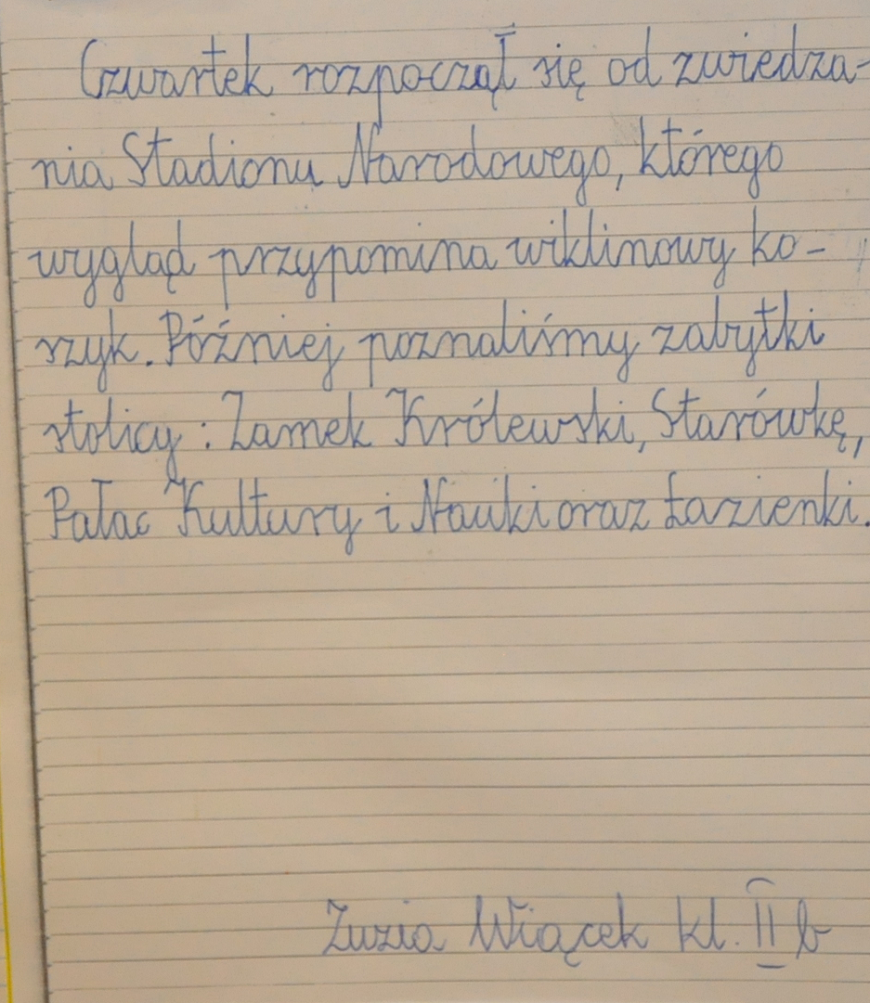 Czwartek rozpoczął się od zwiedza-
nia Stadionu Narodowego, którego
wygląd przypomina wiklinowy ko-
szyk. Później poznaliśmy zabytki
stolicy: Zamek Królewski, Starówkę,
Pałac Kultury i Nauki oraz Łazienki.
Zuzia Wiącek kl. II b